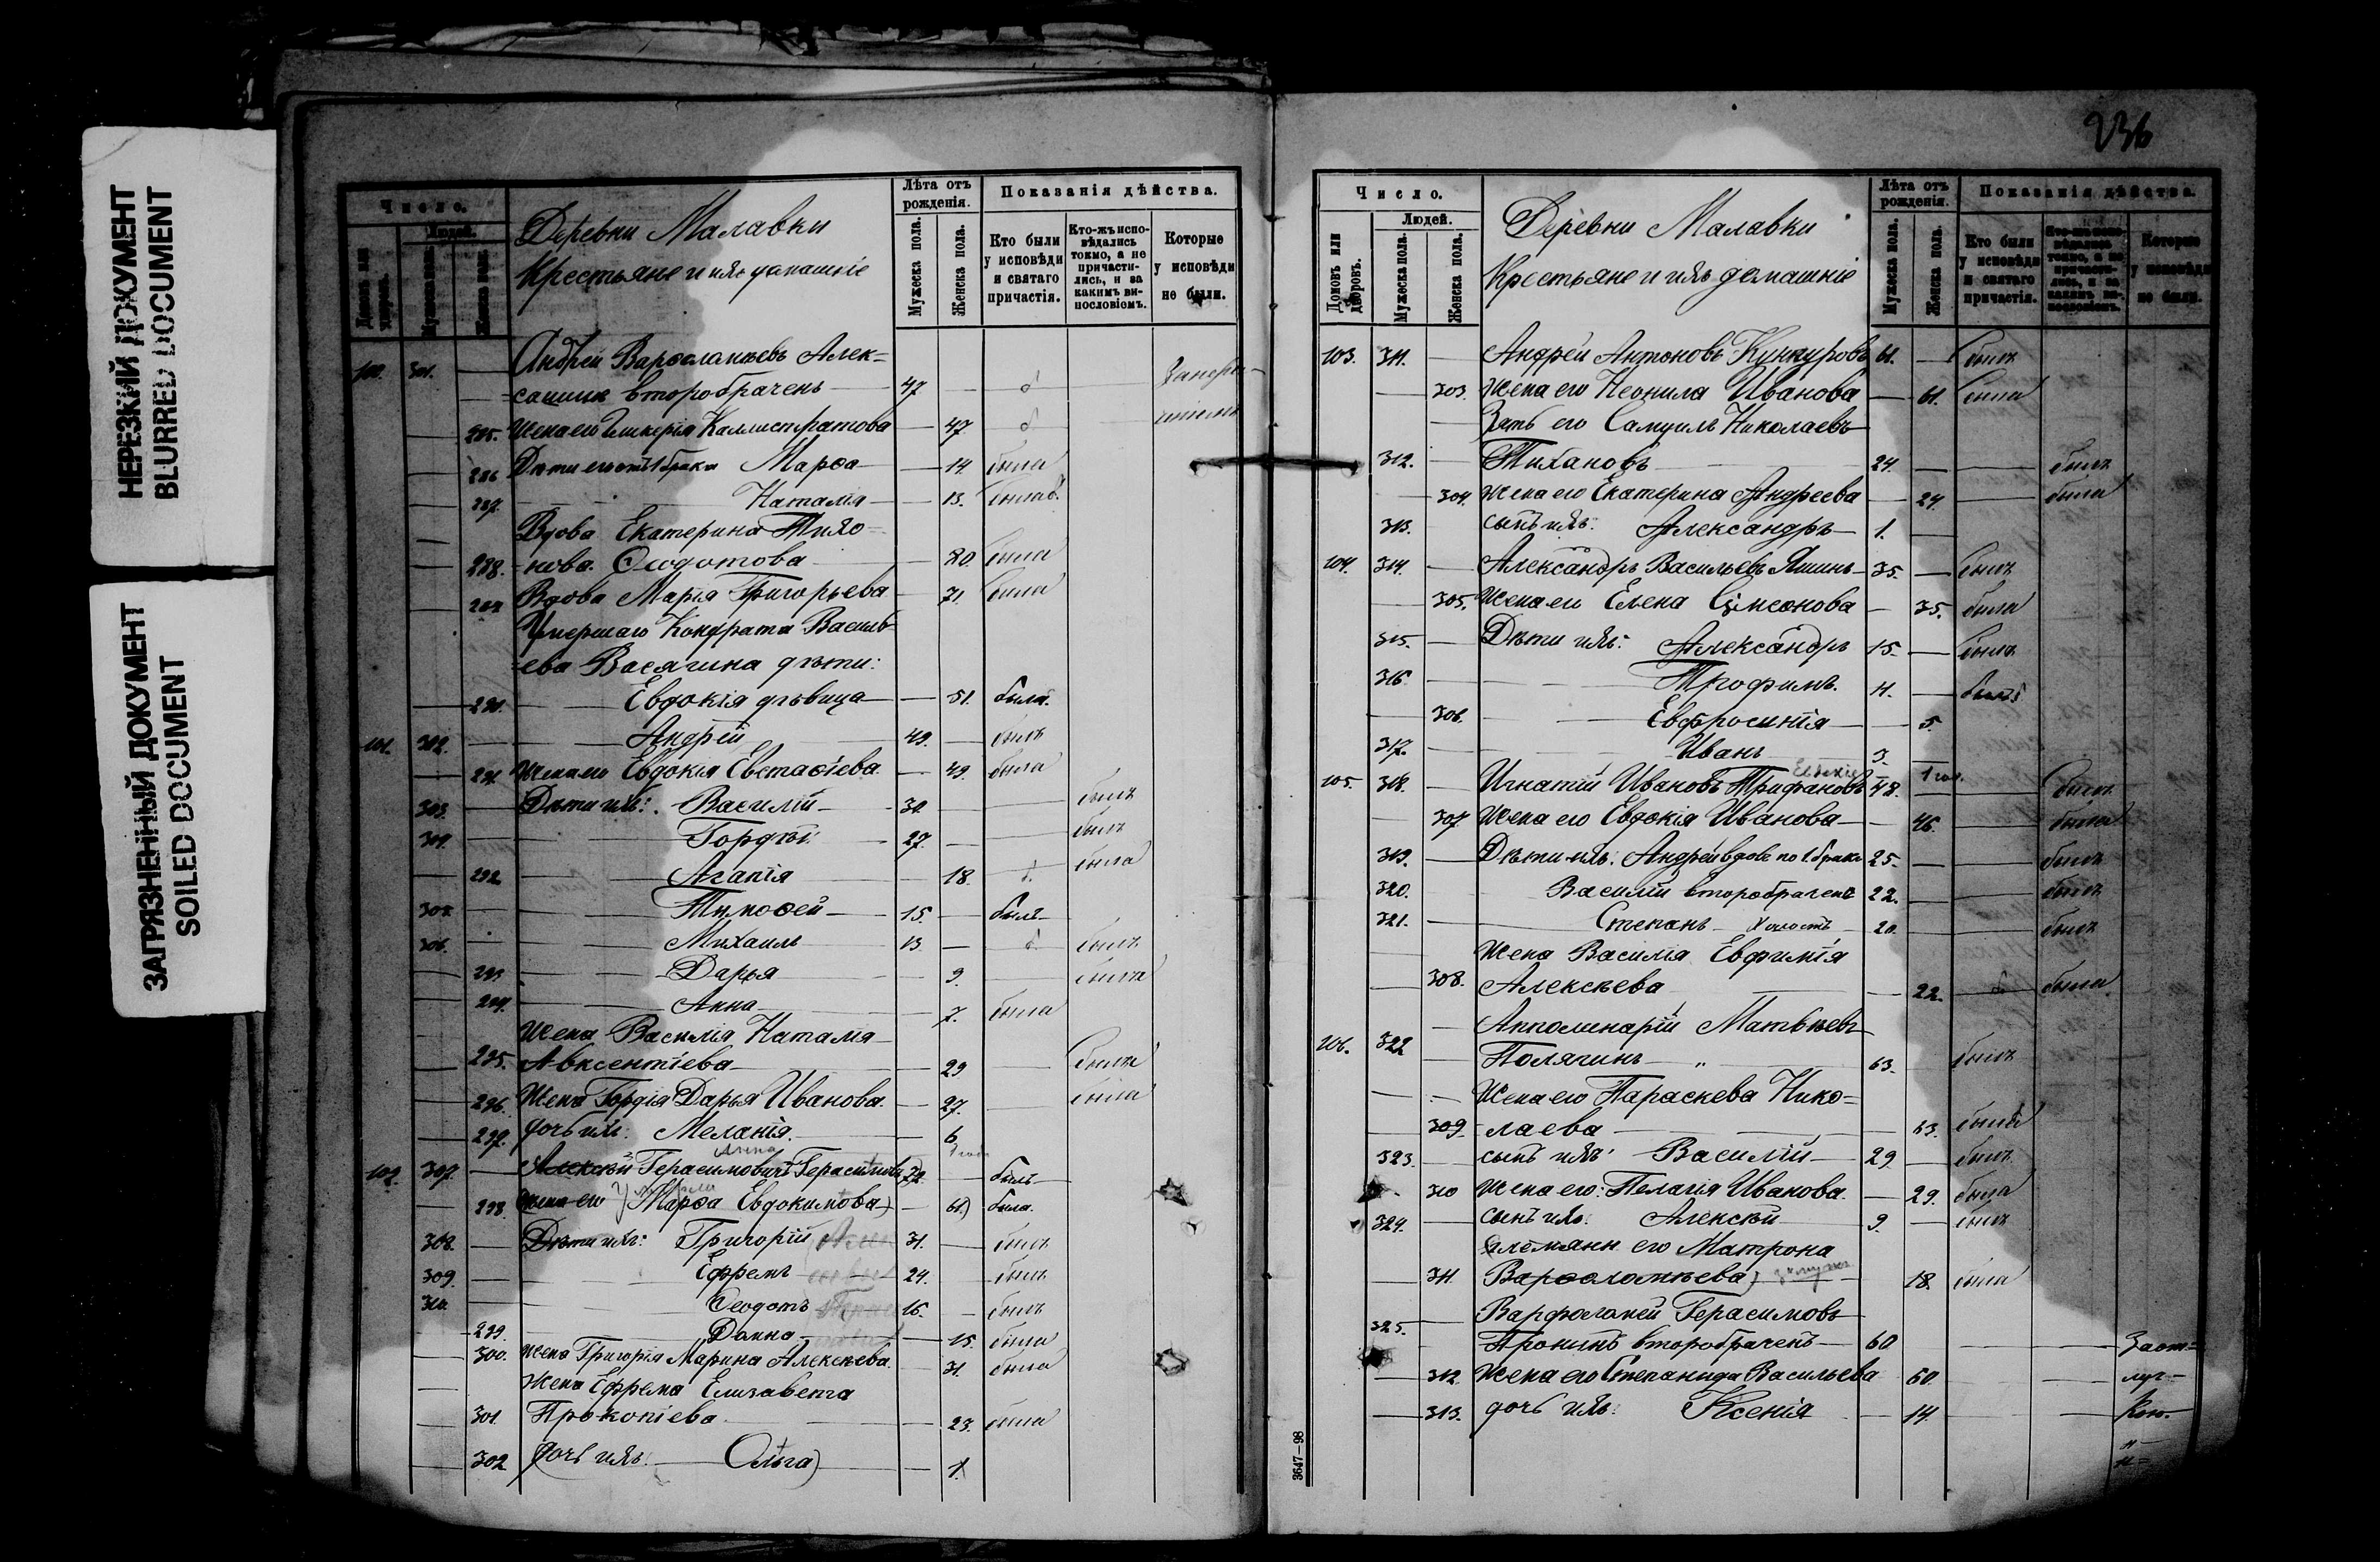 НЕРЕЗКИЙ ДОКУМЕНТ
BLURRED DOCUMENT
ЗАГРЯЗНЕННЫЙ ДОКУМЕНТ
SOILED DOCUMENT
Число.
Людей.
Деревни Малавки
Крестьяне и ихъ домашніе
Лѣта отъ рожденія.
Мужеска пола.
Женска пола.
Показанія дѣйства.
Кто были у исповѣди и святаго причастія.
Кто-жъ исповѣдались токмо, а не причастились, и за какимъ винословіемъ.
Которые у исповѣди не были.
301. Андрей Варѳоломеевъ Алек=
сашинъ второбраченъ 47
285. Жена его Гликерія Каллистратова 47
286 Дѣти его отъ 1 брака Марѳа 14 была
287. Наталія 13. была
Вдова Екатерина Тихо=
288. нова Ѳеодотова 80 была
289 Вдова Марія Григорьева 71. была
Умершаго Кондрата Василь=
ева Васягина дѣти:
290. Евдокія дѣвица 51. была.
101. 302. Андрей 49. былъ
291. Жена его Евдокія Евстаѳіева 49. была
303. Дѣти ихъ: Василій 30. былъ
304. Гордѣй 27. былъ
292 Агапія 18. была
305. Тимоѳей 15. былъ
306. Михаилъ 13. былъ
293 Дарья 9. была
294. Анна 7. была
Жена Василія Наталія
295. Авксентіева 29 была
296. Жена Гордія Дарья Иванова. 27. была
297. дочь ихъ: Меланія. 6
Анна 1 годъ
102. 307. Алексѣй Герасимовичъ Герасимовъ 72. былъ
298. Жена его Марѳа Евдокимова 61. была.
308. Дѣти ихъ: Григорій 31. былъ
309. Ефремъ 24. былъ
310. Ѳеодотъ 16. былъ
299. Домна 15. была
300. жена Григорія Марина Алексѣева. 31. была
Жена Ефрема Елизавета
301. Прокопіева 23. была
302 дочь ихъ: Ольга 1.
236
Число.
Домовъ или дворовъ.
Людей.
Мужеска пола.
Женска пола.
Деревни Малавки
Крестьяне и ихъ домашніе
Лѣта отъ рожденія.
Мужеска пола.
Женска пола.
Показанія дѣйства.
Кто были у исповѣди и святаго причастія.
Которые у исповѣди не были.
103. 311. Андрей Антоновъ Кункуровъ 61. былъ
303. Жена его Неонила Иванова 61. была
Зять его Самуилъ Николаевъ
312. Тихановъ 24. былъ
304. Жена его Екатерина Андреева 24. была
313. сынъ ихъ: Александръ 1.
104. 314. Александръ Васильевъ Яшинъ 35. былъ
305. Жена его Елена Сѵмеонова 35. была
315. Дѣти ихъ: Александръ 15. былъ
316. Трофимъ. 11. былъ
306. Евфросинія 5.
317. Иванъ 3.
Евдокія 1 годъ
105. 318. Игнатій Ивановъ Трифановъ 48. былъ
307. Жена его Евдокія Иванова 46. была
319. Дѣти ихъ: Андрей вдовъ по 1 браку 25. былъ
320. Василій второбраченъ 22. былъ
321. Степанъ холостъ 20. былъ
Жена Василія Евфимія
308. Алексѣева 22. была
Апполинарій Матвѣевъ
106. 322 Полягинъ 63. былъ
Жена его Параскева Нико=
309 лаева 63. была
323. сынъ ихъ: Василій 29. былъ
310 Жена его: Пелагія Иванова. 29. была
324. сынъ ихъ: Алексѣй 9. былъ
племянн. его Матрона
311 Варѳоломѣева замужъ 18. была
Варфоломей Герасимовъ
325. Пронинъ второбраченъ 60 Заот=
312. Жена его Степанида Васильева 60. луч=
313. дочь ихъ: Ксенія 14. кою.
3647—98